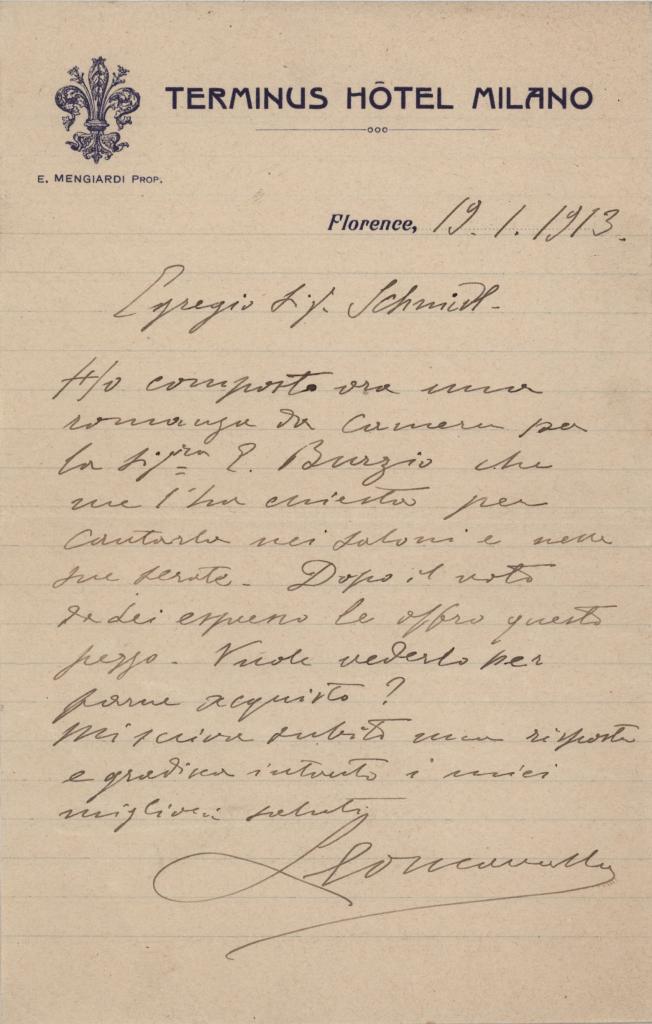 TERMINUS HÔTEL MILANO
E. MENGIARDI PROP.
Florence, 19.1.1913.
Egregio Sig. Schmidl-
Ho composto ora una
romanza da camera per
la Sigra E. Burzio che
me l'ha chiesta per
cantarla nei saloni e nelle
sue serate. Dopo il voto
da Lei espresso le offro questo
pezzo. Vuole vederlo per
farne acquisto?
Mi scriva subito una risposta
e gradisca intanto i miei
migliori saluti
RLeoncavallo